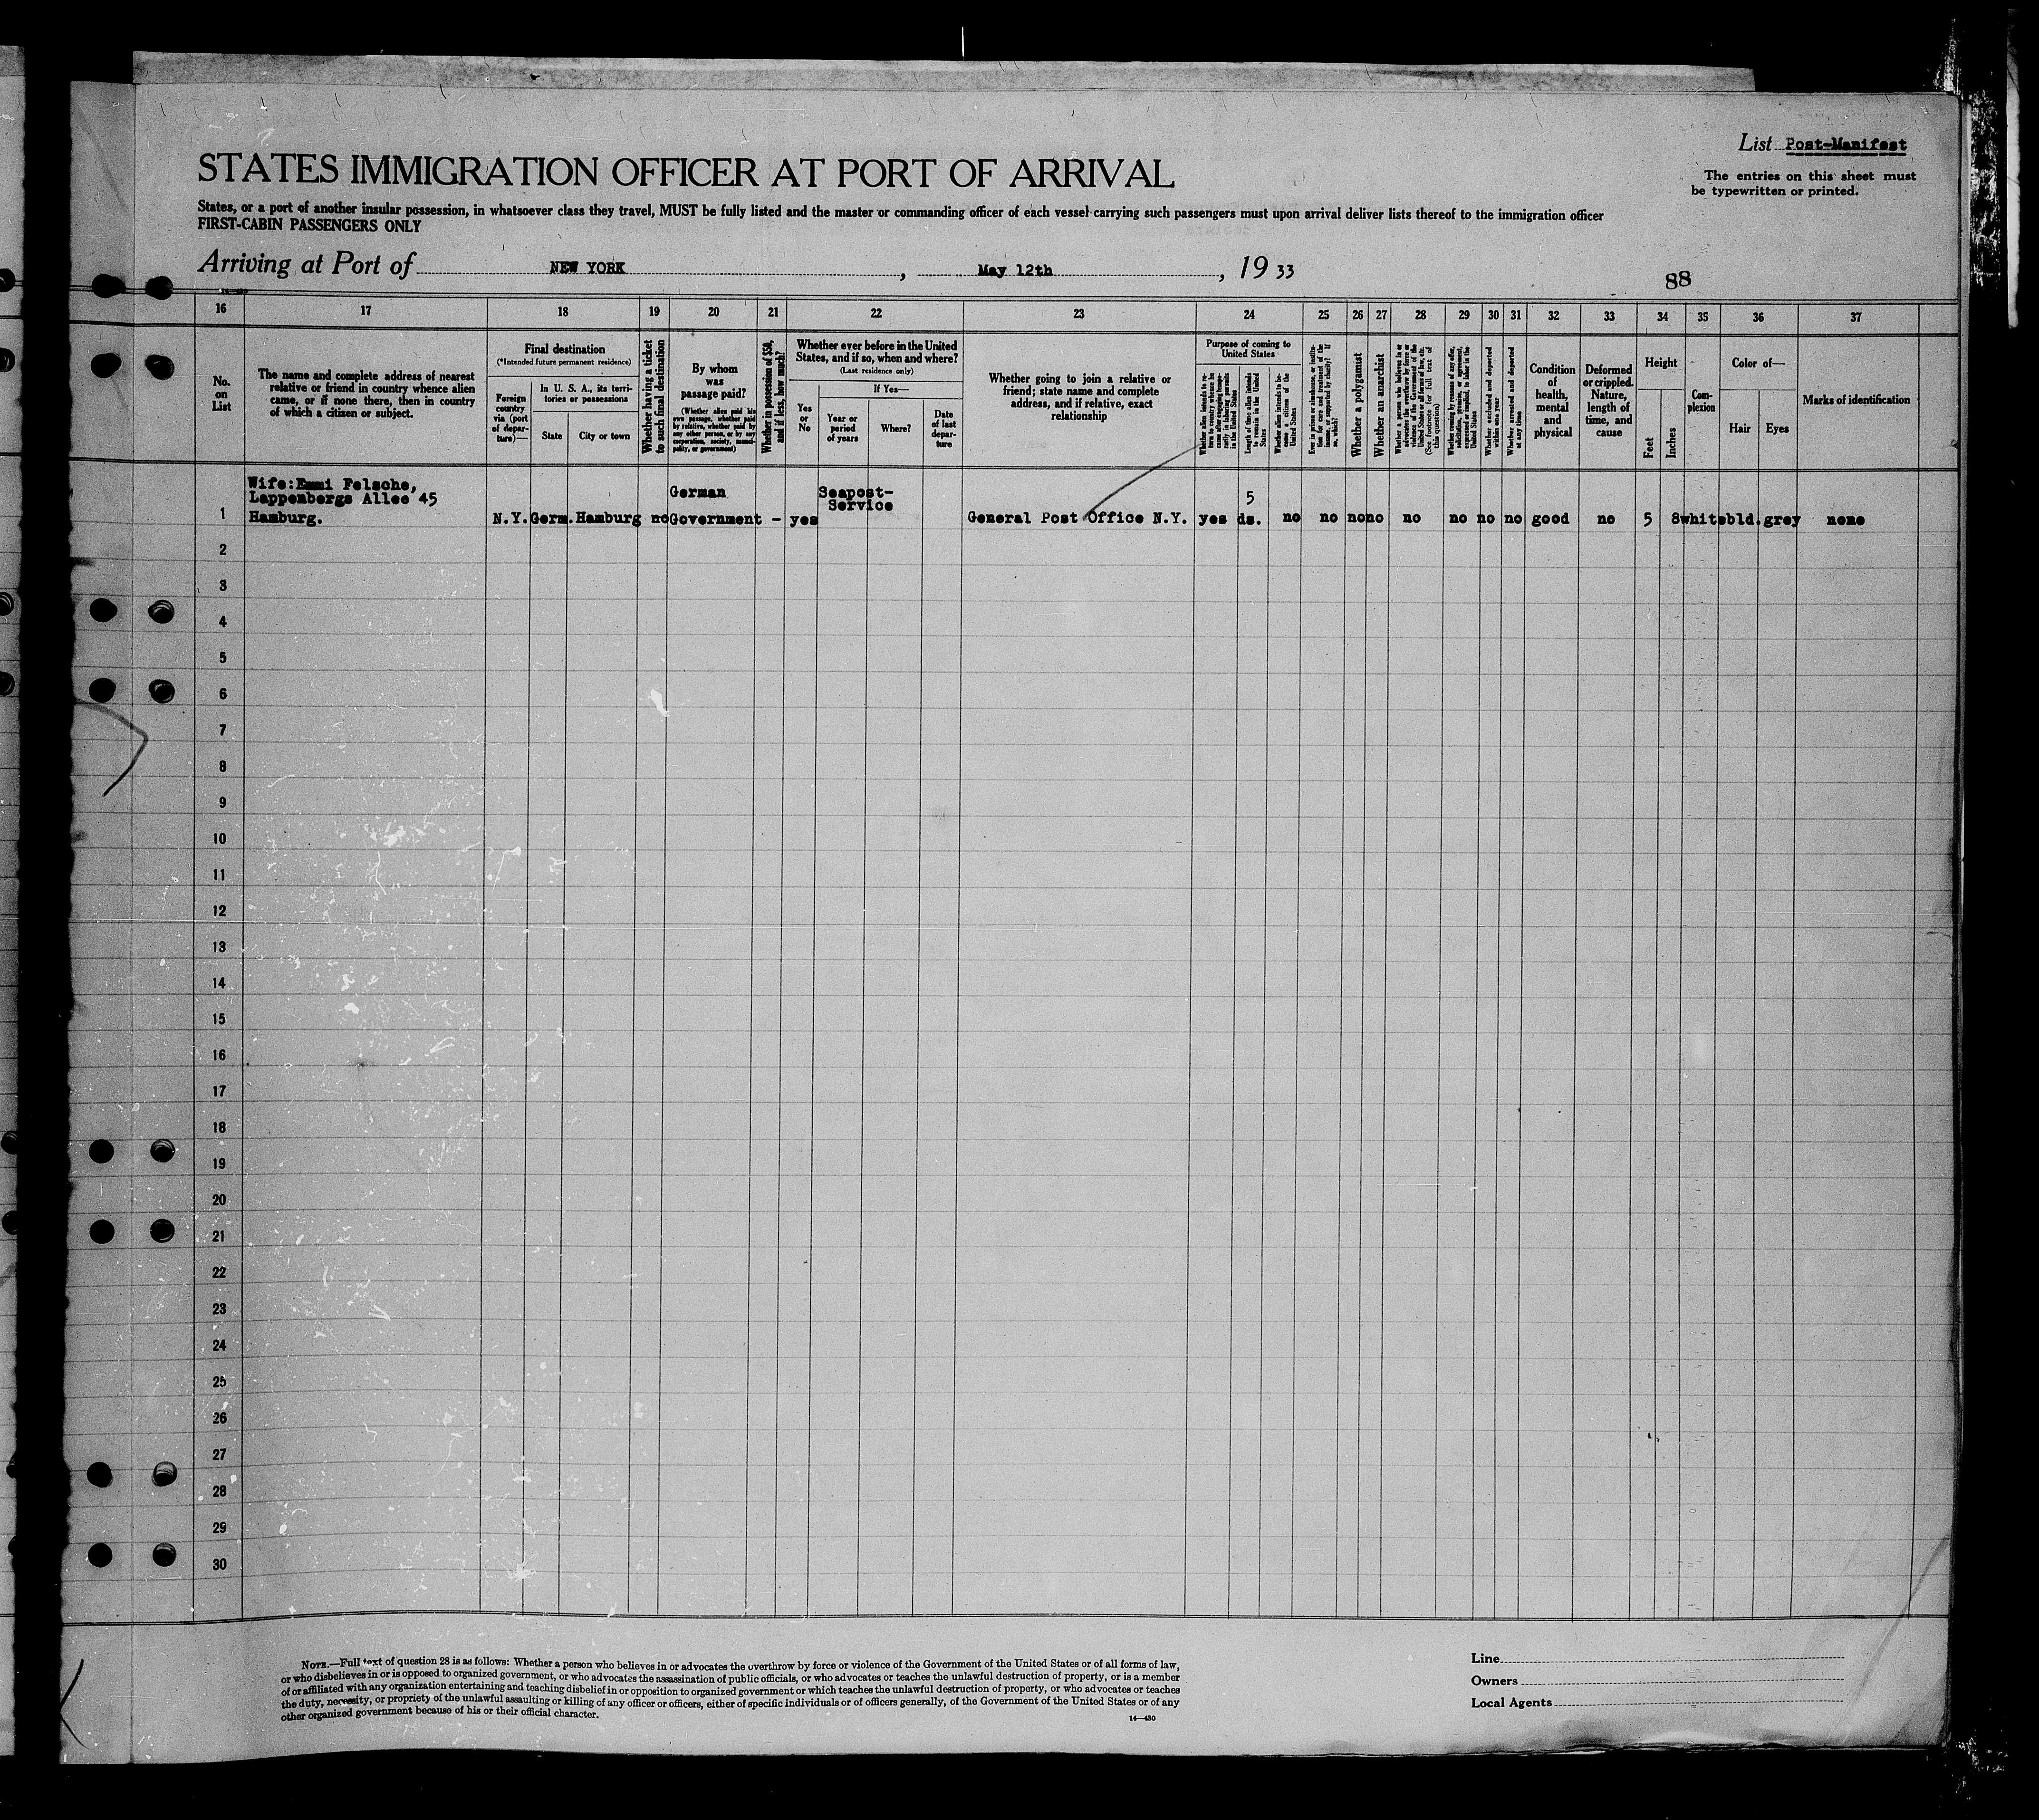 List Post-Manifest
The entries on this sheet must
be typewritten or printed.
STATES IMMIGRATION OFFICER AT PORT OF ARRIVAL
States, or a port of another insular possession, in whatsoever class they travel, MUST be fully listed and the master or commanding officer of each vessel carrying such passengers must upon arrival deliver lists thereof to the immigration officer
FIRST-CABIN PASSENGERS ONLY
Arriving at Port of NEW YORK, May 12th, 19 33
88
16 17 18 19 20 21 22 23 24 25 26 27 28 29 30 31 32 33 34 35 36 37
No.
on
List
The name and complete address of nearest
relative or friend in country whence alien
came, or if none there, then in country
of which a citizen or subject.
Final destination
(*Intended future permanent residence)
Foreign
country
via (port
of depar-
ture)—
In U. S. A., its terri-
tories or possessions
State
City or town
Whether having a ticket
to such final destination
By whom
was
passage paid?
(Whether alien paid his
own passage, whether paid
by relative, whether paid by
any other person, or by any
corporation, society, munici-
pality, or government)
Whether in possession of $50,
and if less, how much?
Whether ever before in the United
States, and if so, when and where?
(Last residence only)
Yes
or
No
If Yes—
Year or
period
of years
Where?
Date
of last
depar-
ture
Whether going to join a relative or
friend; state name and complete
address, and if relative, exact
relationship
Purpose of coming to
United States
Whether alien intends to re-
turn to country whence he
came after engaging tempo-
rarily in laboring pursuits
in the United States
Length of time alien intends
to remain in the United
States
Whether alien intends to be-
come a citizen of the
United States
Ever in prison or almshouse, or institu-
tion for care and treatment of the
insane, or supported by charity? If
so, which?
Whether a polygamist
Whether an anarchist
Whether a person who believes in or
advocates the overthrow by force or
violence of the Government of the
United States or all forms of law, etc.
(See footnote for full text of
this question)
Whether coming by reason of any offer,
solicitation, promise, or agreement,
expressed or implied, to labor in the
United States
Whether excluded and deported
within one year
Whether arrested and deported
at any time
Condition
of
health,
mental
and
physical
Deformed
or crippled.
Nature,
length of
time, and
cause
Height
Feet
Inches
Com-
plexion
Color of—
Hair
Eyes
Marks of identification
Wife:Emmi Felsche,
Lappenbergs Allee 45
German
Seapost-
Service
5
1 Hamburg. N.Y. Germ. Hamburg no Government - yes General Post Office N.Y. yes ds. no no no no no no no no good no 5 8 white bld. grey none
2
3
4
5
6
7
8
9
10
11
12
13
14
15
16
17
18
19
20
21
22
23
24
25
26
27
28
29
30
NOTE.—Full text of question 28 is as follows: Whether a person who believes in or advocates the overthrow by force or violence of the Government of the United States or of all forms of law,
or who disbelieves in or is opposed to organized government, or who advocates the assassination of public officials, or who advocates or teaches the unlawful destruction of property, or is a member
of or affiliated with any organization entertaining and teaching disbelief in or opposition to organized government or which teaches the unlawful destruction of property, or who advocates or teaches
the duty, necessity, or propriety of the unlawful assaulting or killing of any officer or officers, either of specific individuals or of officers generally, of the Government of the United States or of any
other organized government because of his or their official character.
14—430
Line
Owners
Local Agents